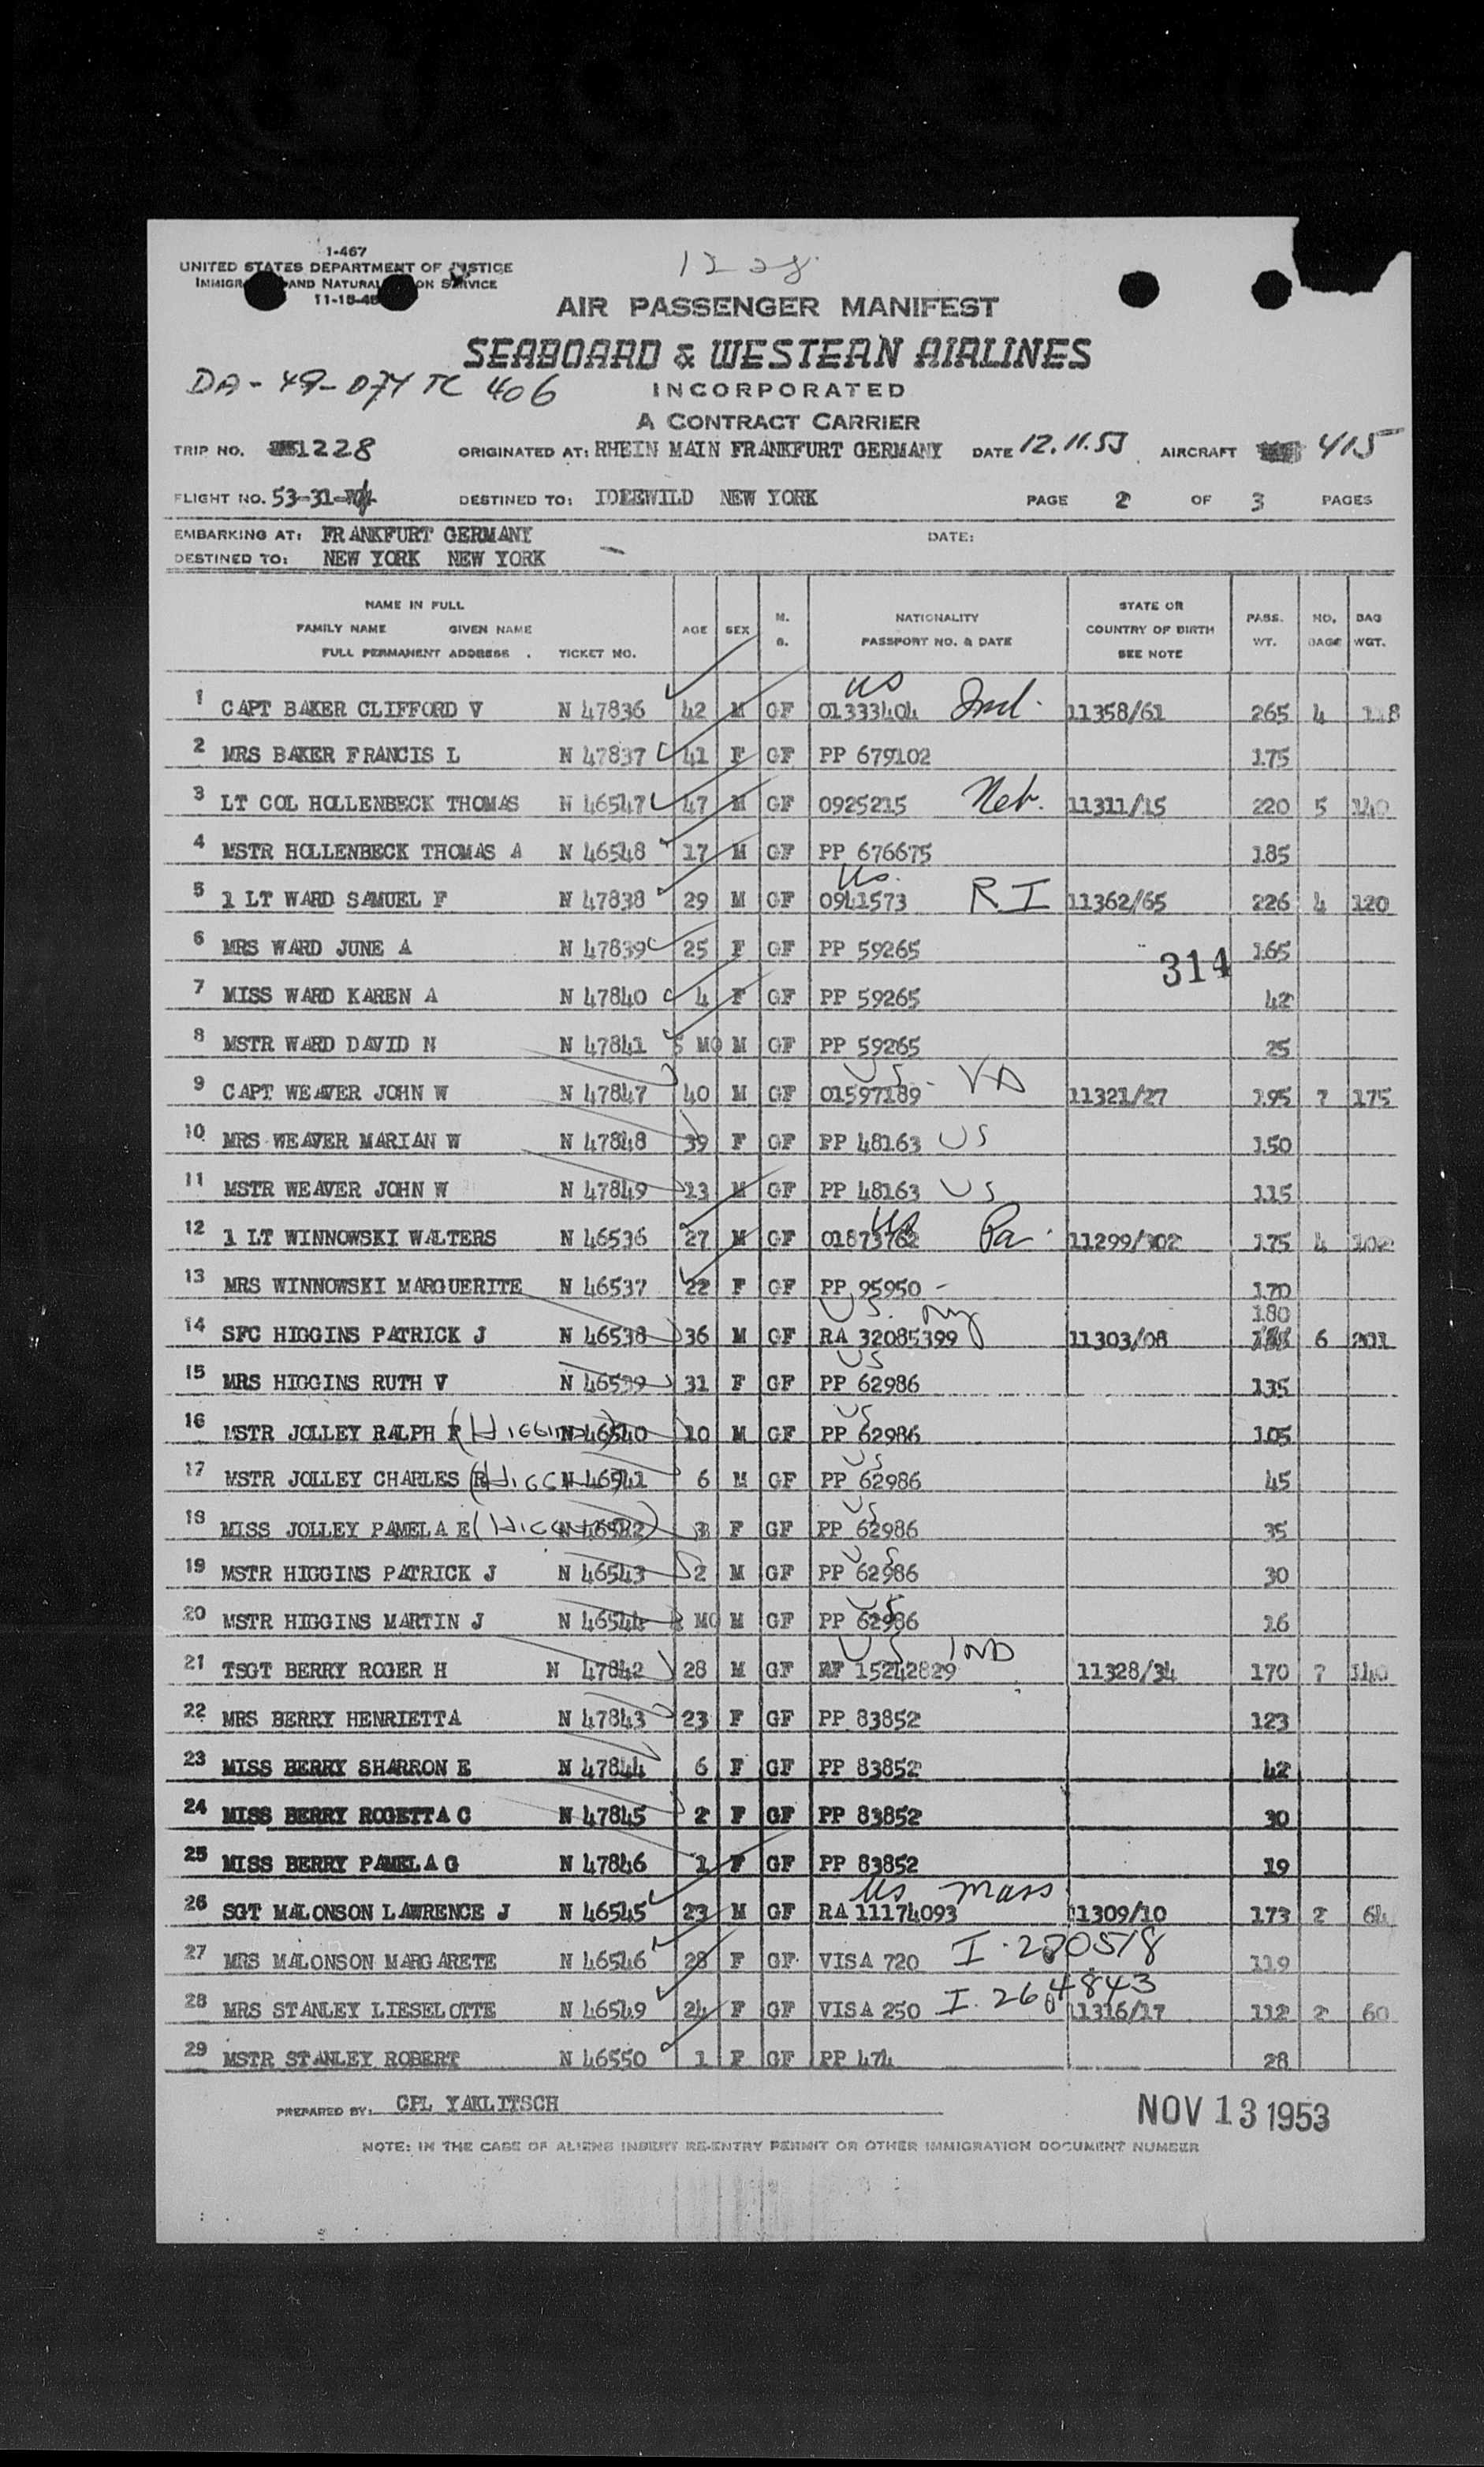 1-467
UNITED STATES DEPARTMENT OF JUSTICE
AND SERVICE
1228
AIR PASSENGER MANIFEST
SEABOARD & WESTERN AIRLINES
DA-49-074 TC 406
INCORPORATED
A CONTRACT CARRIER
TRIP NO. 1228 ORIGINATED AT: RHEIN MAIN FRANKFURT GERMANY DATE 12.11.53 AIRCRAFT 415
FLIGHT NO. 53-31- DESTINED TO: IDLEWILD NEW YORK PAGE 2 OF 3 PAGES
EMBARKING AT: FRANKFURT GERMANY DATE:
DESTINED TO: NEW YORK NEW YORK
NAME IN FULL
FAMILY NAME GIVEN NAME
FULL PERMANENT ADDRESS . TICKET NO. AGE SEX M. B. NATIONALITY PASSPORT NO. & DATE STATE OR COUNTRY OF BIRTH SEE NOTE PASS. WT. NO. BAGS BAG WGT.
1 CAPT BAKER CLIFFORD V N 47836 42 M GF 01333404 US Ind. 11358/61 265 4 118
2 MRS BAKER FRANCIS L N 47837 41 F GF PP 679102 175
3 LT COL HOLLENBECK THOMAS N 46547 47 M GF 0925215 Neb. 11311/15 220 5 140
4 MSTR HOLLENBECK THOMAS A N 46548 17 M GF PP 676675 185
5 1 LT WARD SAMUEL F N 47838 29 M GF 0941573 US. RI 11362/65 226 4 120
6 MRS WARD JUNE A N 47839 25 F GF PP 59265 165
314
7 MISS WARD KAREN A N 47840 4 F GF PP 59265 42
8 MSTR WARD DAVID N N 47841 5 MO M GF PP 59265 25
9 CAPT WEAVER JOHN W N 47847 40 M GF 01597189 US - VA 11321/27 195 7 175
10 MRS WEAVER MARIAN W N 47848 39 F GF PP 48163 US 150
11 MSTR WEAVER JOHN W N 47849 13 M GF PP 48163 US 115
12 1 LT WINNOWSKI WALTERS N 46536 27 M GF 01873762 US Pa. 11299/302 175 4 102
13 MRS WINNOWSKI MARGUERITE N 46537 22 F GF PP 95950 - 170
14 SFC HIGGINS PATRICK J N 46538 36 M GF RA 32085399 US. NY 11303/08 180 6 201
15 MRS HIGGINS RUTH V N 46539 31 F GF PP 62986 US 135
16 MSTR JOLLEY RALPH R (HIGGINS) N 46540 10 M GF PP 62986 US 105
17 MSTR JOLLEY CHARLES R N 46541 6 M GF PP 62986 US 45
18 MISS JOLLEY PAMELA E N 46542 3 F GF PP 62986 US 35
19 MSTR HIGGINS PATRICK J N 46543 2 M GF PP 62986 US 30
20 MSTR HIGGINS MARTIN J N 46544 MO M GF PP 62986 US 16
21 TSGT BERRY ROGER H N 47842 28 M GF AF 15242829 US IND 11328/34 170 7 140
22 MRS BERRY HENRIETTA N 47843 23 F GF PP 83852 123
23 MISS BERRY SHARRON E N 47844 6 F GF PP 83852 42
24 MISS BERRY ROGETTA C N 47845 2 F GF PP 83852 30
25 MISS BERRY PAMELA G N 47846 1 F GF PP 83852 19
26 SGT MALONSON LAWRENCE J N 46545 23 M GF RA 11174093 US Mass 11309/10 173 2 64
27 MRS MALONSON MARGARETE N 46546 28 F GF VISA 720 I. 119
28 MRS STANLEY LIESELOTTE N 46549 24 F GF VISA 250 I. 264843 11316/17 112 2 60
29 MSTR STANLEY ROBERT N 46550 1 F GF PP 474 28
PREPARED BY: CPL YAKLITSCH
NOV 13 1953
NOTE: IN THE CASE OF ALIENS INSERT RE-ENTRY PERMIT OR OTHER IMMIGRATION DOCUMENT NUMBER